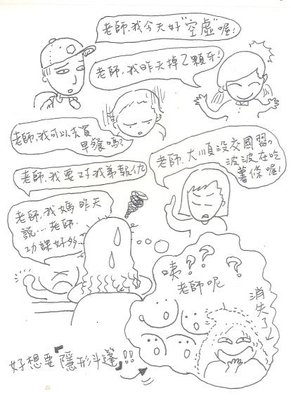 老師，我今天好"空虛"喔！
老師，我昨天掉了顆牙！
老師，我可以去買
早餐嗎？
老師，大順沒交國習。
波波在吃
薯條喔！
老師，我要對我弟報仇
老師，我媽昨天
說…老師
功課好少…
咦？？？
老師呢？
消失了
好想要『隱形斗篷』!!